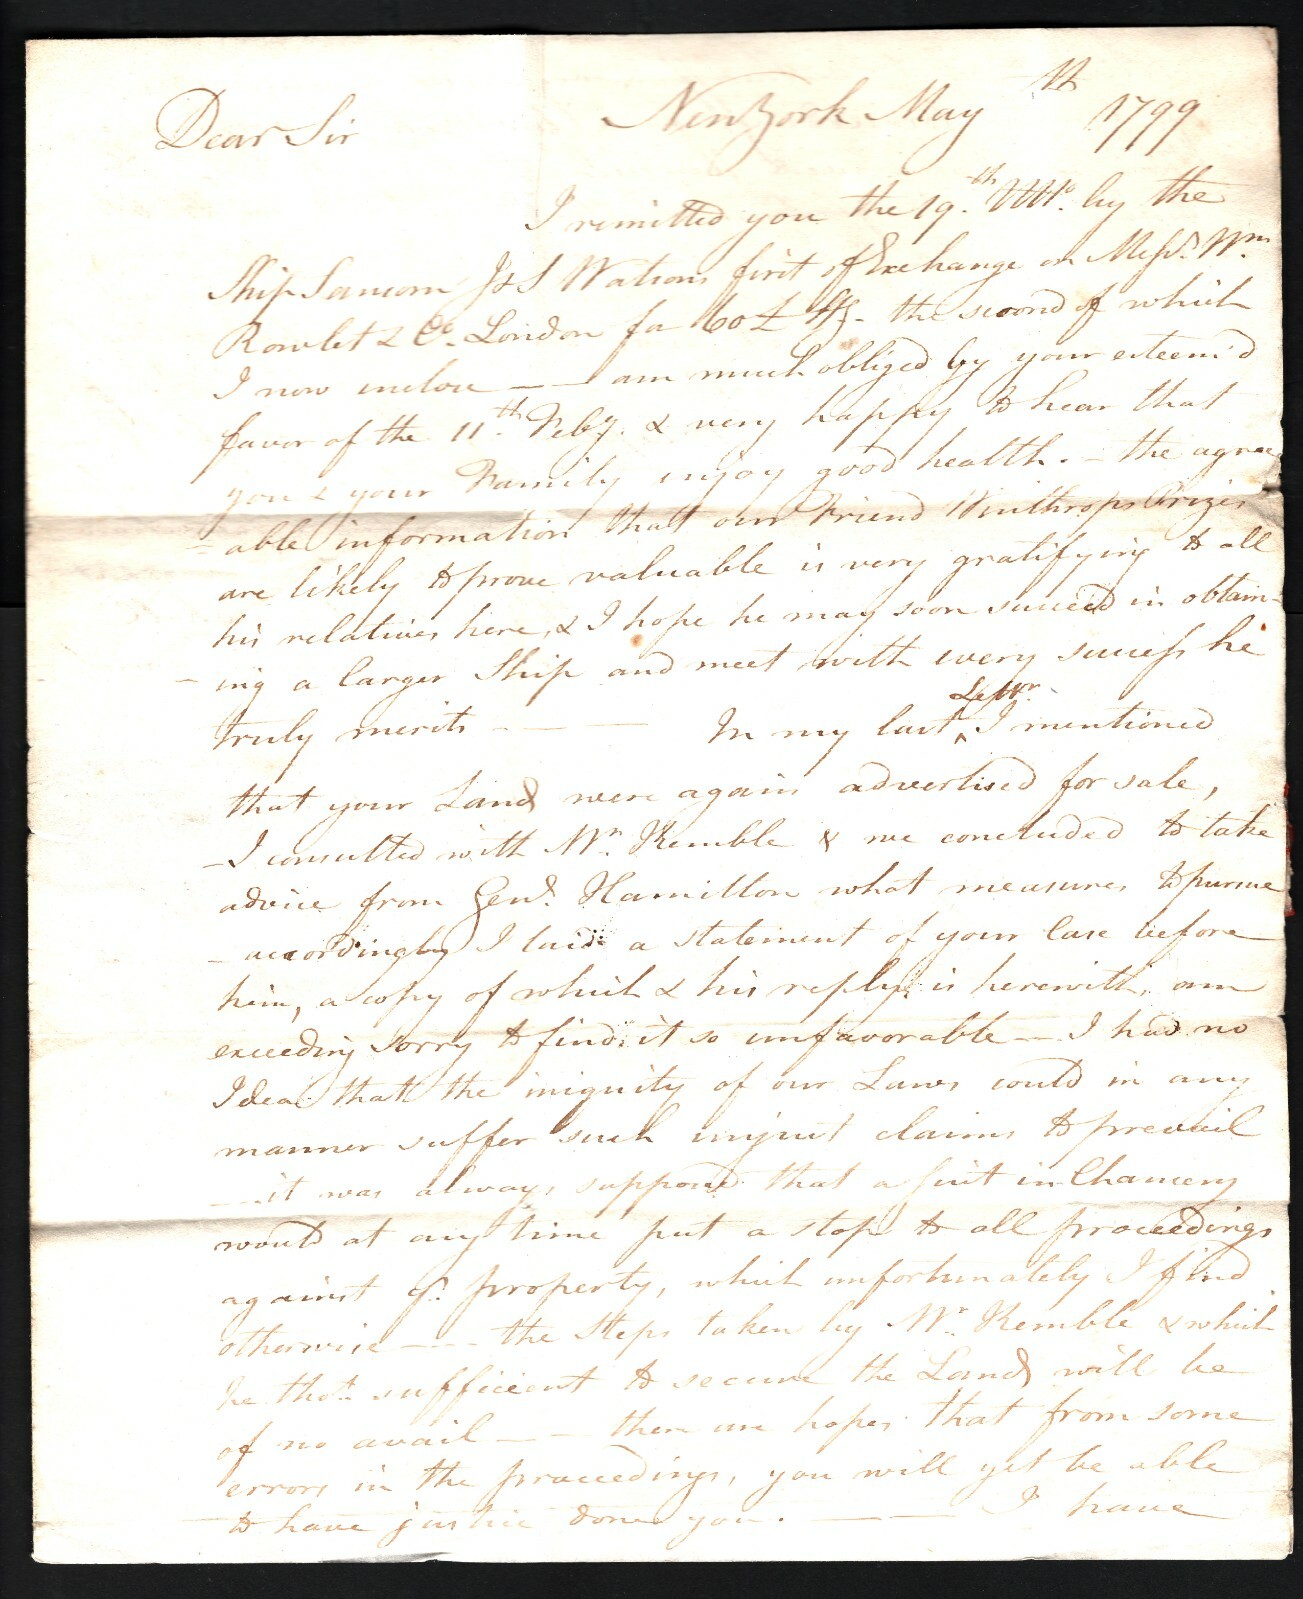 Dear Sir
New York May th 1799
I remitted you the 19.th Ulto. by the
Ship Sansom J & S Watsons first of Exchange on Messrs. Wm
Rowlet & Co. London for 60£ Stg. the second of which
I now inclose — I am much obliged by your esteem'd
favor of the 11.th Feby. & very happy to hear that
you & your Family injoy good health. – the agree
= able information that our Friend Winthrops Prizes
are likely to prove valuable is very gratifying to all
his relatives here, & I hope he may soon succeed in obtain-
- ing a larger Ship and meet with every success he
truly merits — — In my last ^ Letter I mentioned
that your Lands were again advertised for sale,
- I consulted with Mr. Kemble & we concluded to take
advice from Genl. Hamilton what measures to pursue
- accordingly I laid a statement of your Case before
him, a copy of which & his reply is herewith, am
exceeding sorry to find it so unfavorable — I had no
Idea that the iniquity of our Laws could in any
manner suffer such unjust claims to prevail
— it was always supposed that a suit in Chancery
would at any time put a stop to all proceedings
against yr. property, which unfortunately I find
otherwise — the Steps taken by Mr. Kemble & which
he thot. sufficient to secure the Lands will be
of no avail — there are hopes that from some
errors in the proceedings, you will yet be able
to have justice done you. — — I have